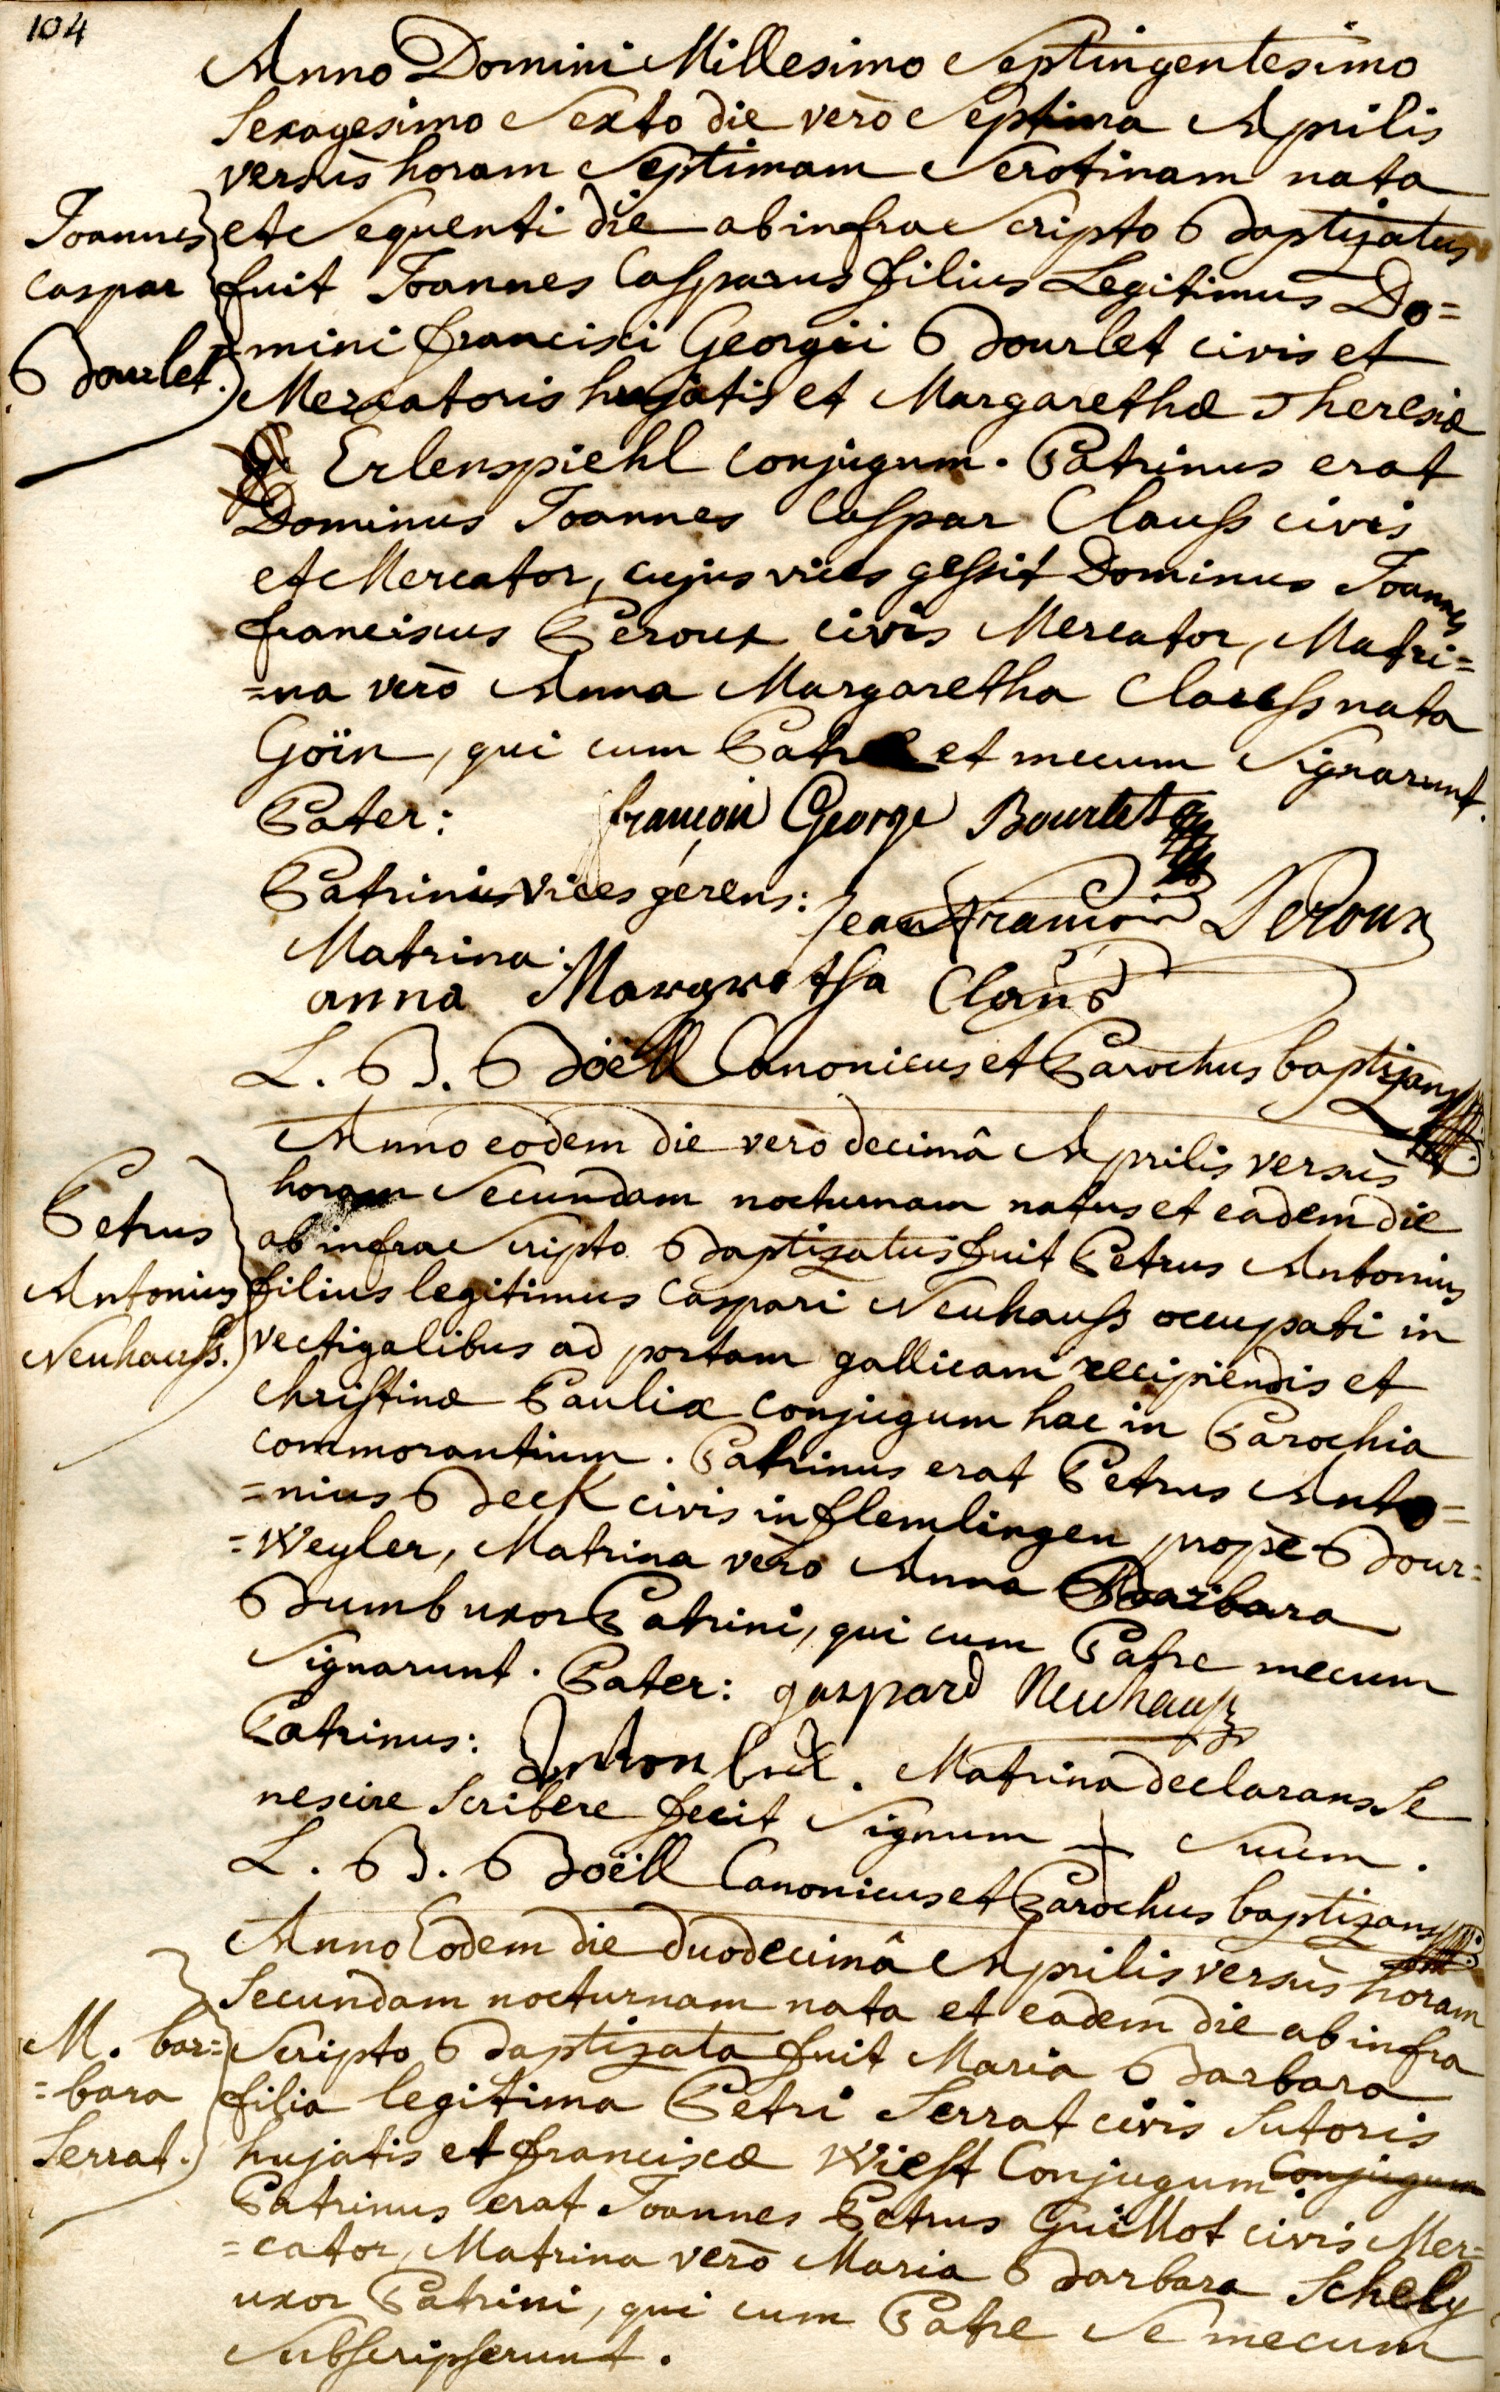 104
Anno Domini Millesimo Septingentesimo
Sexagesimo Sexto die verò Septima Aprilis
versùs horam Septimam Serotinam nata
Joannes
Caspar
Bourlet.
et Sequenti die ab infra Scripto Baptizatus
fuit Joannes Casparus filius Legitimus Do=
=mini francisci Georgii Bourlet civis et
Mercatoris hujatis et Margarethæ Theresiæ
Erlenspiehl conjugum. Patrinus erat
Dominus Joannes Caspar Clauss civis
et Mercator, cujus vices gessit Dominus Joannes
franciscus Peroux civis Mercator, Matri=
=na verò Anna Margaretha Clauss nata
Goïn, qui cum Patre et mecum Signarunt.
Pater: françois George Bourlet
Patrini vices gerens: Jean François Peroux
Matrina:
anna Margretha Clauß
L. B. Boëll Canonicus et Parochus baptizans
Anno eodem die verò decimâ Aprilis versùs
horam Secundam nocturnam natus et eâdem die
Petrus
Antonius
Neuhauss.
ab infra Scripto Baptizatus fuit Petrus Antonius
filius legitimus Caspari Neuhauss occupati in
vectigalibus ad portam gallicam recipiendis et
Christinæ Pauliæ conjugum hac in Parochia
commorantium. Patrinus erat Petrus Anto=
=nius Beck civis in flemlingen propè Bour=
=Weyler, Matrina verò Anna Barbara
Bumb uxor Patrini, qui cum Patre mecum
Signarunt. Pater: gaspard Neuhauß
Patrinus: Anton beck. Matrina declarans Se
nescire Scribere fecit Signum + Suum.
L. B. Boëll Canonicus et Parochus baptizans
Anno Eodem die duodecimâ Aprilis versùs horam
Secundam nocturnam nata et eâdem die ab infra
M. bar=
=bara
Serrat.
Scripto Baptizata fuit Maria Barbara
filia legitima Petri Serrat civis Sutoris
hujatis et franciscæ Wiest Conjugum. Conjugum
Patrinus erat Joannes Petrus Guillot civis Mer=
=cator, Matrina verò Maria Barbara Schely
uxor Patrini, qui cum Patre Se mecum
Subscripserunt.